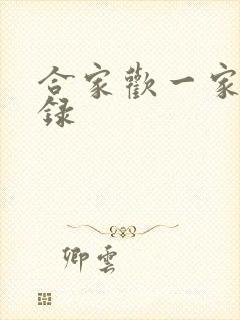 合家歡一家
録
卿雲